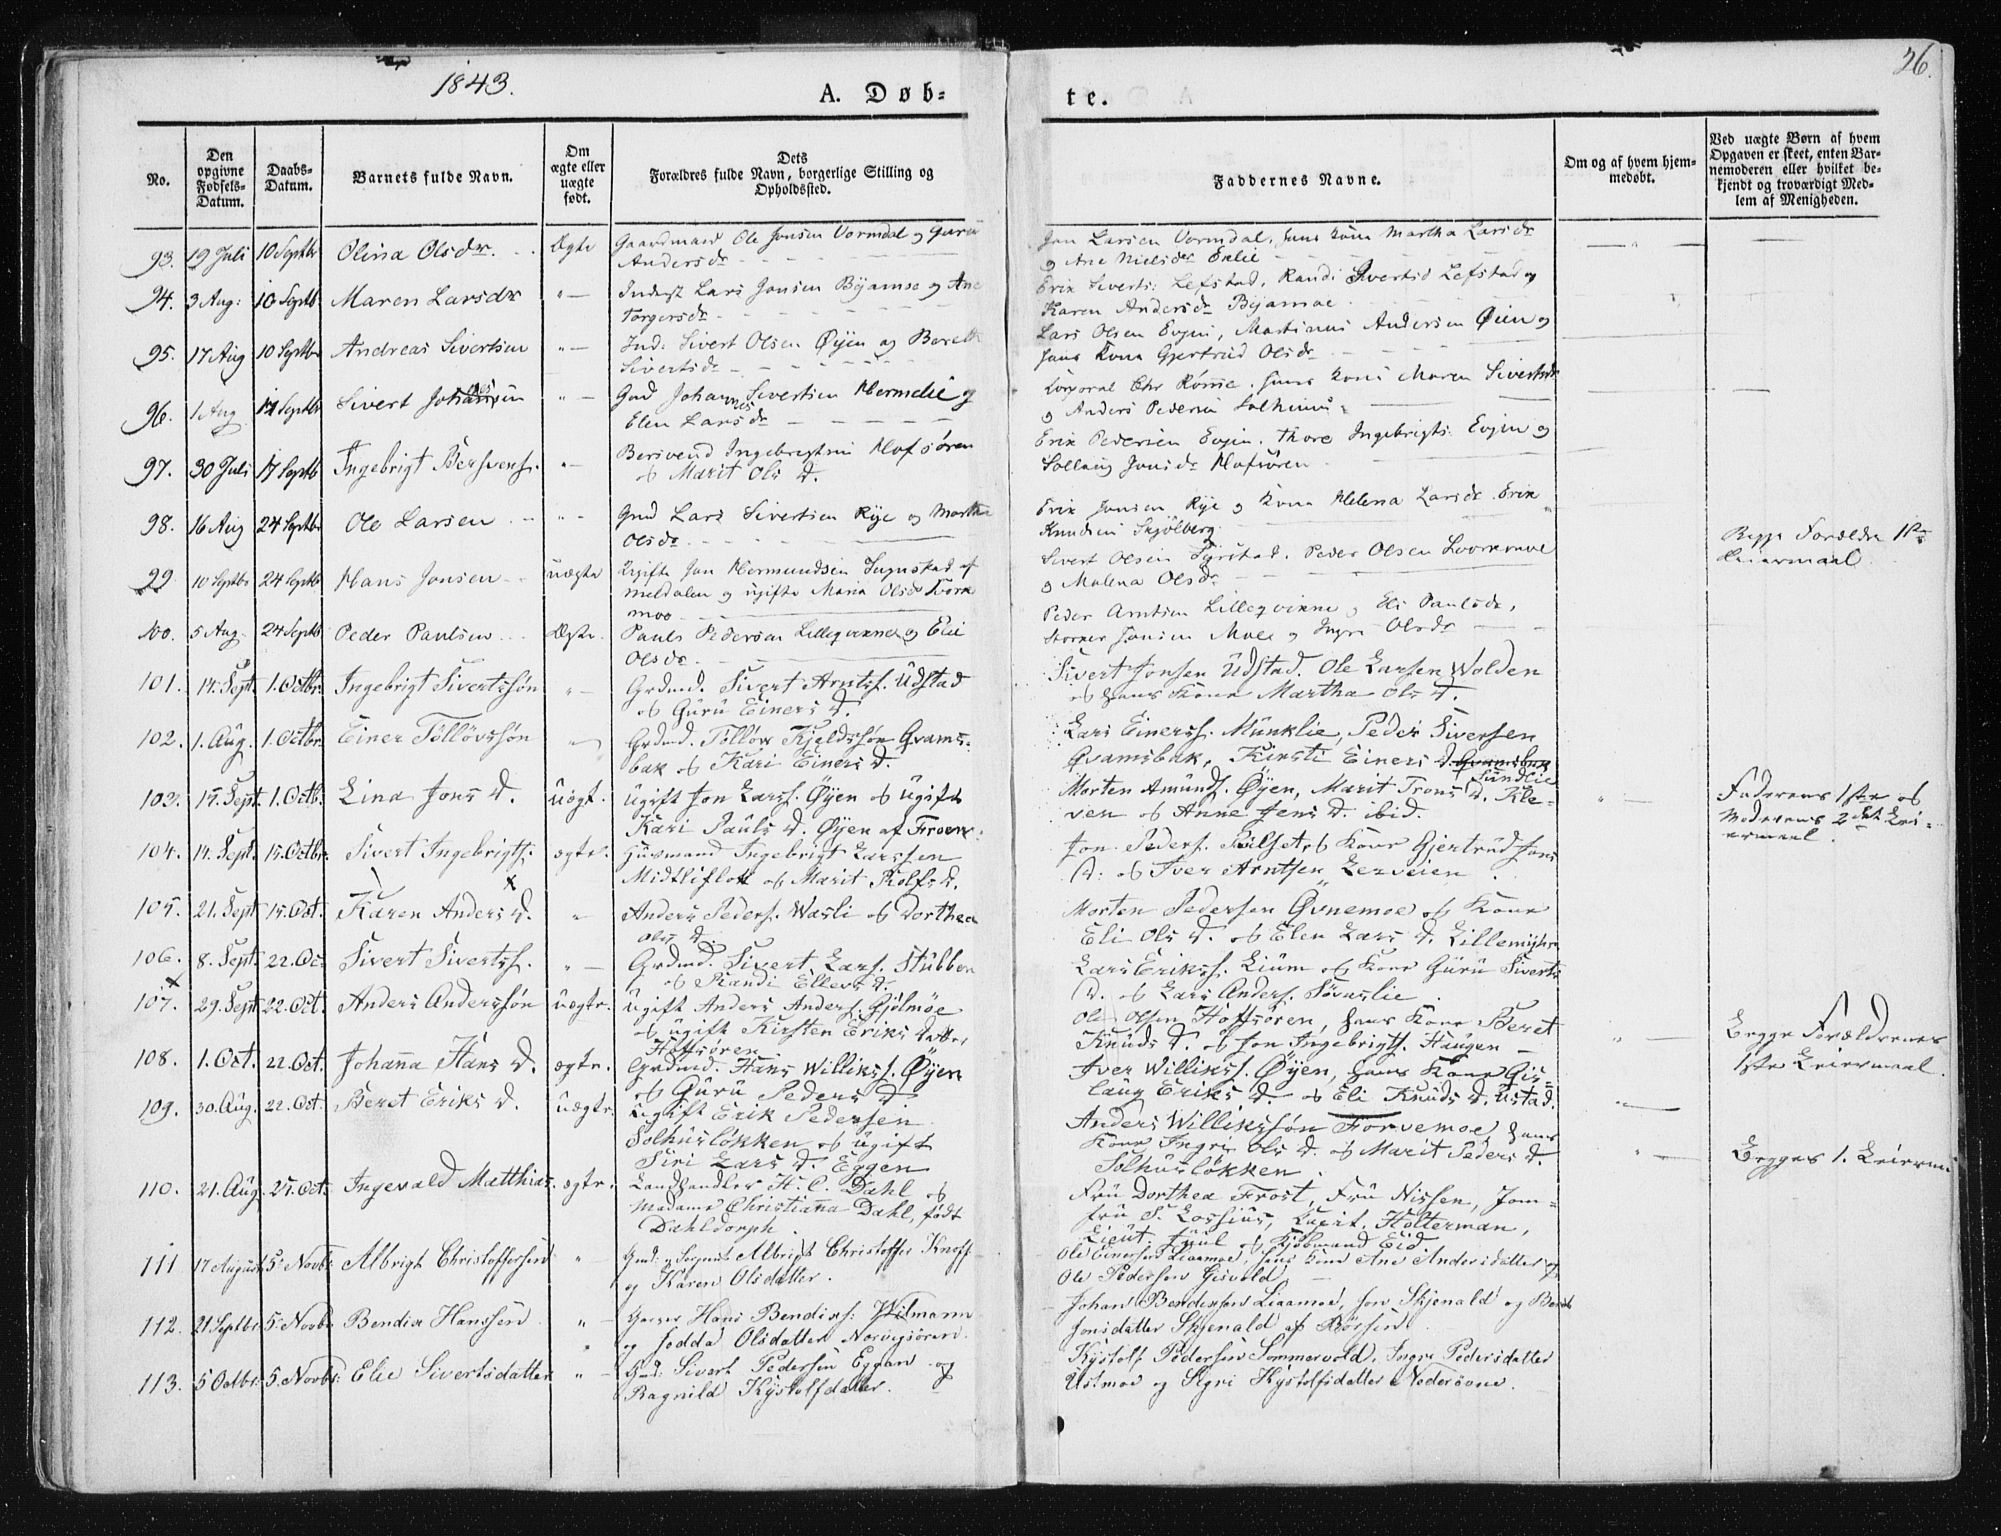 1843.
A. Døb=
te.
26.
No.
Den opgivne Fødsels-Datum.
Daabs-Datum.
Barnets fulde Navn.
Om ægte eller uægte født.
Dets Forældres fulde Navn, borgerlige Stilling og Opholdssted.
Faddernes Navne.
Om og af hvem hjem-
medøbt.
Ved uægte Børn af hvem
Opgaven er skeet, enten Bar-
nemoderen eller hvilket be-
kjendt og troværdigt Med-
lem af Menigheden.
93. 19 Juli 10 Septbr Olina Olsdr. Ægte Gaardmand Ole Jonsen Vormdal og Guru
Andersdr
Jon Larsen Vormdal, hans Kone Martha Larsdr
og Ane Nielsdr Eklie
94. 3 Aug: 10 Septb. Maren Larsdr "— Inderst Lars Jonsen Bjamoe og Ane
Torgersdr
Erik Siverts: Lefstad, Randi Sivertsd Lefstad og
Karen Andersdr Bjamoe
95. 17 Aug 10 Septbr Andreas Sivertsen "— Ind: Sivert Olsen Øyen og Berett
Sivertsdr
Lars Olsen Evjen, Martinus Andersen Øien og
hans Kone Gjertrud Olsdr
96. 1 Aug 17 Septbr Sivert Johannessen "— Gmd Johannes Sivertsen Hermelie og
Elen Larsdr
Corporal Chr Rømme, hans Kone Maren Sivertsdr
og Anders Pedersen Solhuus
97. 30 Juli 17 Septb Ingebrigt Bersvens. "— Bersvend Ingebrigtsen Hofsøren
& Marit Ols D.
Erik Pedersen Evjen, Thore Ingebrigts: Evjen og
Sollaug Jonsdr Hofsøren
98. 16 Aug 24 Septbr Ole Larsen "— Gmd Lars Sivertsen Rye og Martha
Olsdr
Erik Jonsen Rye og Kone Helena Larsdr. Erik
Knudsen Skjølberg
99 10 Septbr 24 Septbr Hans Jonsen uægte Ugifte Jon Hermundsen Sugnstad af
Meldalen og ugifte Maria Olsdr Kvork
moe
Sivert Olsen Fyrstad, Peder Olsen Kvorkmoe
og Malena Olsdr
Begge Forældre 1ste
Leiermaal
100. 5 Aug. 24 Septb Peder Paulsen Ægte. Pauls Pedersen Lilleqvinne og Elie
Olsdr
Peder Arntsen Lilleqvinne, Eli Paulsdr,
Storker Jonsen Moee og Ingri Olsdr
101. 14. Sept. 1. Octbr. Ingebrigt Sivertssøn "— Grdmd. Sivert Arntss. Udstad
& Guru Einers D.
Sivert Jonsen Udstad. Ole Larsen Wolden
& hans Kone Martha Ols D.
102. 1. Aug. 1. Octbr. Einer Tølløvssøn "— Grdmd. Tølløv Kjeldssøn Gvams-
bak & Kari Einers D.
Lars Einerss. Munklie, Peder Siversen
Gvamsbak, Kirsti Einers D. Gvamsbak
Sundlie
103. 15. Sept. 1. Octb. Lina Jons D. uægt. Ugift Jon Larss. Øyen & Ugift
Kari Pauls D. Øyen af Froen.
Morten Amunds. Øyen, Marit Trons D. Kle-
ven & Anne Jens D. ibid.
"—
Faderens 1ste &
Moderens 2det Lei-
ermaal.
104. 14. Sept. 15. Octbr. Sivert Ingebrigts. ægte. Huusmand Ingebrigt Larssen
Midtliflott & Marit Rolfs D.
Jon Peders. Rulset, & Kone Gjertrud Jons
D. & Iver Arntsen Lerveien
105. 21. Sept 15. Oct. Karen Anders D. " Anders Peders. Wasli & Dorthea
Ols D.
Morten Pedersen Gvnemoe & Kone
Eli Ols D. & Elen Lars D. Lillemyhren
106. 8. Sept. 22. Oc. Sivert Sivertss. "— Grdmd. Sivert Lars. Stubben
& Randi Ellevs D.
Lars Erikss. Lium & Kone Guru Siverts
D. & Lars Anders. Fovaslie
107. 29. Sept 22. Oct. Anders Anderssøn uægte. Ugift Anders Anders. Gjølmøe
& ugift Kirsten Eriks Datter
Hoffsøren
Ole Olsen Hoffsøren, hans Kone Beret
Knuds D. & Jon Ingebrigts. Haugen —
"—
Begge Forældrenes
1ste Leiermaal.
108. 1. Oct. 22. Oct. Johanna Hans D. ægte. Grdmd. Hans Willikss. Øyen
& Guru Peders D
Iver Willikss. Øyen, hans Kone Gis-
laug Eriks D. & Eli Knuds D. Ustad.
109. 30. Aug. 22. Oct. Beret Eriks D. uægte. Ugift Erik Pedersen
Solhusløkken & ugift
Siri Lars D. Eggen
Anders Willikssøn Forvemoe, hans
Kone Ingri Ols D. & Marit Peders D.
Solhusløkken.
"—
Begges 1. Leierm.
110. 21. Aug. 25. Oct. Ingevald Matthias. ægte. Landhandler H. C. Dahl &
Madame Christianna Dahl, født
Dahldorph.
Fru Dorthea Frost, Fru Nissen, Jom-
fru S. Lossius, Lieut. Holterman,
Lieut. Juul & Kjøbmand Eid
111 17 August 5. Novbr Albrigt Christoffersen " Gmd: og Sergeant Albrigt Christoffer Knoff
og Karen Olsdatter.
Ole Einersen Liaamoe, hans Kone Ane Andersdatter og
Ole Pedersen Gisvold
112. 21 Septbr 5. Novbr Bendix Hanssen " Garver Hans Bendixs: Wilmann
og Jodda Olsdatter Norvigsøren.
Johan Bendixsen Liaamoe, Jon Skjenald og Berit
Jonsdatter Skjenald af Børsen.
113. 5 Octbr. 5. Novbr: Elie Sivertsdatter " Gmd: Sivert Pedersen Eggan og
Ragnild Kystolfdatter.
Kystolf Pedersen Sommervold, Ingri Pedersdatter
Ustmoe og Sigri Kystolfsdatter Nedersone.